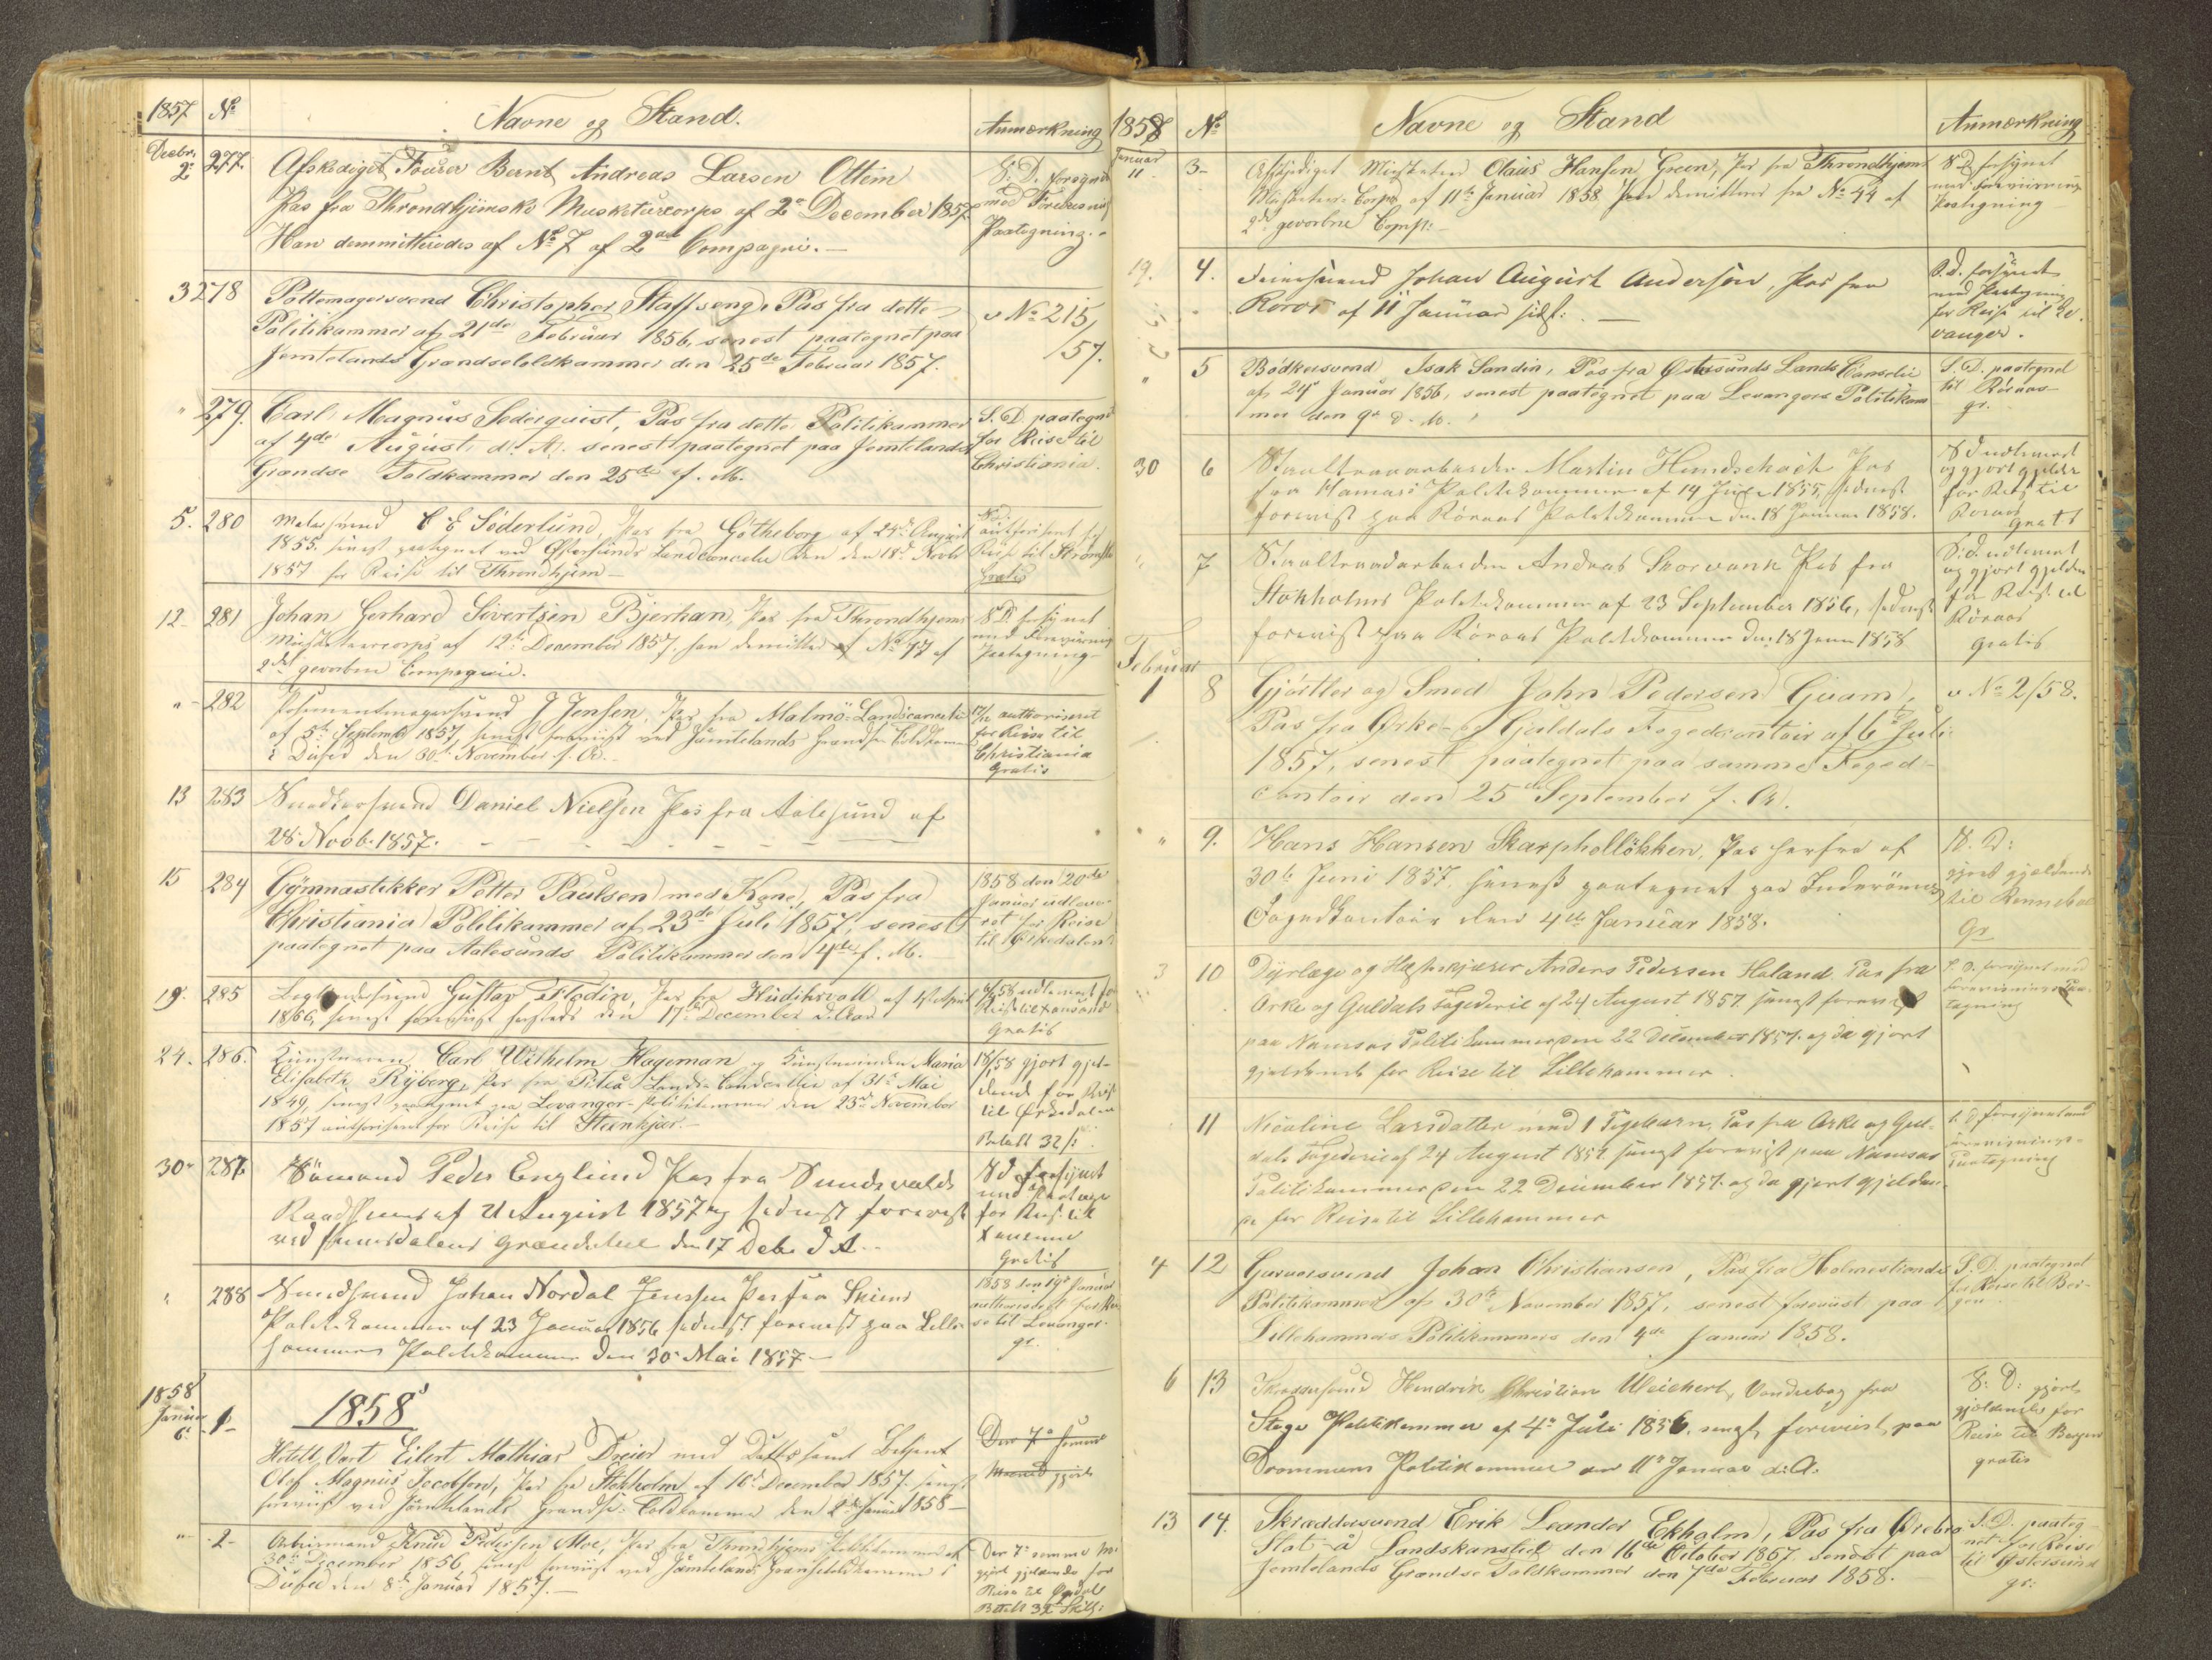 1857 No Navne og Stand. Anmærkning
Decbr. 2. 277. Afskediget Fourer Bernt Andreas Larsen Ottem
Pas fra Throndhjemske Musketeercorps af 2den December 1857.
Han demmitteredes af No 7 af 2det Compagni.
S. D. forsynet
med Forevisnings
Paategning.
3 278 Pottemagersvend Christopher Staffseng, Pas fra dette
Politikammer af 21de Februar 1856, senest paategnet paa
Jemtelands Grændsetoldkammer den 25de Februar 1857.
v No 215/
57.
" 279. Carl Magnus Söderquist, Pas fra dette Politikammer
af 4de August d. A. senest paategnet paa Jemtelands
Grændse Toldkammer den 25de f. M.
S. D paategnet
for Reise til
Christiania.
5. 280 Malersvend C E Söderlund, Pas fra Götheborg af 24de August
1855. senest paategnet ved Østersunds Landcancelie den 18de Novb
1857 for Reise til Throndhjem
authoriseret for
Reise til
Gratis
12 281 Johan Gerhard Sivertsen Bjerkan, Pas fra Throndhjems
Musketeercorps af 12te December 1857. han demitteret af No 77 af
2det gevorbne Compagnie.
S. D. forsynet
med Forevisnings
Paategning
" 282 J Jensen, Pas fra Malmö Landscancelie
af 5te September 1857, senest forevist ved Jämtelands Grændse Toldkammer
i Dufed den 30te November f. A.
authoriseret
for Reise til
Christiania
Gratis
13 283 Snedkersvend Daniel Nielsen Pas fra Aalesund af
28 Novb. 1857.
15 284 Gymnastikker Petter Paulsen med Kone, Pas fra
Christiania Politikammer af 23de Juli 1857, senest
paategnet paa Aalesunds Politikammer den 4de f. M.
1858 den 20de
Januar udleve-
ret for Reise
til Ørkedalen
19. 285 Gustav Flodin, Pas fra Hudiksvall af April
1856, senest forevist den 17de December d. Aar
58 udleveret for
Reise til
Gratis
24. 286. Kunstneren Carl Wilhelm Hageman og Kunstnerinden Maria
Elisabeth Ryberg, Pas fra Piteå Lands-Cancellie af 31te Mai
1849, senest paategnet paa Levanger Politikammer den 23de November
1857 authoriseret for Reise til Steenkjær.
18/58 gjort gjel-
dende for Reise
til Ørkedalen
Betalt 32 s
30. 287 Sömand Peder Englund Pas fra Sundsvalds
af 21 August 1857 og sidenst forevist
ved den 17 Debr d A.
S d forsynet
med Paategn
for Reise til
Gratis
" 288 Johan Nordal Jenssen Pas fra Skiens
Politikammer af 23 Januar 1856 sidenst forevist paa Lille-
hammers Politikammer den 30 Mai 1857
1858 den 19de Januar
authoriseret for Rei-
se til Levanger.
gr.
1858
1858 Januar 6. 1 Hotell Vært Eilert Mathias Dreier med Datter samt Betjent
Olof Magnus Jacobson, Pas fra Stokholm af 16de December 1857. senest
forevist ved Jämtelands Grændse-Toldkammer den 2de Januar 1858
Den 7de samme
Maaned gjort
" 2 Arbeidsmand Knud Pedersen Moe, Pas fra Throndhjems Politikammer af
30te December 1856, senest forevist ved Jämtelands Grændsetoldkammer i
Dufed den 8de Januar 1857.
Den 7de samme M.
gjort gjeldende for
Reise til
Betalt 32 Skill:
1858 No Navne og Stand Anmærkning
Januar 11. 3 Afskediget Musketeer Olaus Hansen Green, Pas fra Throndhjems
Musketeer-Corps af 11te Januar 1858 Han demitteret fra No 44 af
2det gevorbne Comp:
S. D forsynet
med Forevisnings
Paategning
19. 4. Johan August Anderson, Pas fra
Röros af 11 Januar sidst.
S. d. forsynet
med Paategning
for Reise til Le-
vanger.
" 5 Bødkersvend Isak Sandin, Pas fra Østersunds Lands Canselie
af 24de Januar 1856, senest paategnet paa Levangers Politikam
mer den 9de d. M.
S. D. paategnet
til Röraas
gr.
30 6 Staaltraadarbeider Martin Hundschach Pas
fra Hamars Politikammer af 14 Juli 1855, sidenst
forevist paa Röraas Politikammer den 18 Januar 1858.
S d udleveret
og gjort gjelden
for Reise til
Roraas
Gratis
" 7 Staaltraadarbeider Andreas Skorvank Pas fra
Stokholms Politikammer af 23 September 1856, sidenst
forevist paa Röraas Politikammer den 18 Janu 1858
S: d. udleveret
og gjort gjelden
for Reise til
Röraas
Gratis
Februar 1 8 Gjørtler og Smed John Pedersen Gvam,
Pas fra Ørke- og Guldals Fogedcontoir af 6te Juli
1857, senest paategnet paa samme Foged-
contoir den 25de September f. A.
v No 2/58.
" 9. Hans Hansen Skarphølløkken, Pas herfra af
30te Juni 1857. senest paategnet paa Inderöens
Fogedkontoir den 4de Januar 1858.
S. D:
gjort gjældende
til
Gr
3 10 Dyrlæge og Anders Pedersen Haland Pas fra
Orke og Guldals Fogederie af 24 August 1857 senest forevist
paa Namsos Politikammer den 22 December 1857. og da gjort
gjeldende for Reise til Lillehammer.
S. D. forsynet med
Forevisnings Paa-
tegning
" 11 Nicoline Larsdatter med 1 Pigebarn, Pas fra Orke og Gul-
dals Fogederie af 24 August 1857, senest forevist paa Namsos
Politikammer den 22 December 1857. og da gjort gjelden-
de for Reise til Lillehammer
S. D. forsynet med
Forevisnings-
Paategning
4 12 Garversvend Johan Christiansen, Pas fra Holmestrands
Politikammer af 30te November 1857, senest forevist paa
Lillehammers Politikammers den 4de Januar 1858.
S. D. paategnet
for Reise til Ber-
gen.
6 13 Hendrik Christian Weichert, Vandrebog fra
Stege Politikammer af 4de Juli 1856. senest forevist paa
Drammens Politikammer den 11te Januar d. A.
S: D: gjort
gjældende for
Reise til Bergen
gratis
13 14. Skræddersvend Erik Leander Ekholm, Pas fra Örebro
Slot å Landskansliet den 16de October 1857. Senest paa
Jemtelands Grændse Toldkammer den 7de Februar 1858.
S. D. paateg-
net for Reise
til Østersund
gr.